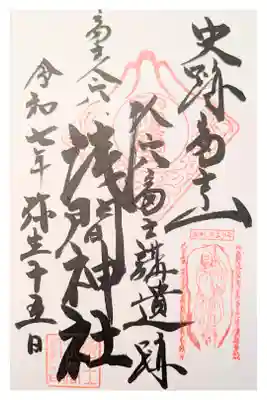 史跡富士山
人穴富士講遺跡
富士人穴
浅間神社
令和七年弥生十五日